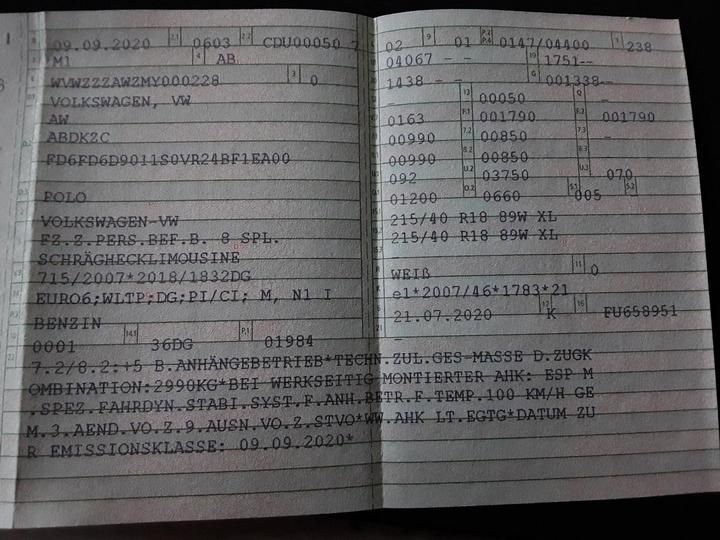 09.09.2020 2.1 0603 2.2 CDU00050 7
M1 4 AB
WVWZZZAWZMY000228 3 0
VOLKSWAGEN, VW
AW
ABDKZC
FD6FD6D9011S0VR24BF1EA00
POLO
VOLKSWAGEN-VW
FZ.Z.PERS.BEF.B. 8 SPL.
SCHRÄGHECKLIMOUSINE
715/2007*2018/1832DG
EURO6;WLTP;DG;PI/CI; M, N1 I
BENZIN
0001 14.1 36DG P.1 01984
7.2/8.2:+5 B.ANHÄNGEBETRIEB*TECHN.ZUL.GES-MASSE D.ZUGK
OMBINATION:2990KG*BEI WERKSEITIG MONTIERTER AHK: ESP M
.SPEZ.FAHRDYN.STABI.SYST.F.ANH.BETR.F.TEMP.100 KM/H GE
M.3.AEND.VO.Z.9.AUSN.VO.Z.STVO*WW.AHK LT.EGTG*DATUM ZU
R EMISSIONSKLASSE: 09.09.2020*
02 9 01 P.2 P.4 0147/04400 T 238
04067 - - 19 1751--
1438 - - G 001338--
- 13 00050 Q -
0163 F.1 001790 001790
00990 7.2 00850 7.3 -
00990 8.2 00850 8.3 -
092 U.2 03750 U.3 070
01200 O.2 0660 S.1 005 S.2
215/40 R18 89W XL
215/40 R18 89W XL
-
WEIß 11 0
e1*2007/46*1783*21
21.07.2020 17 K 16 FU658951
-